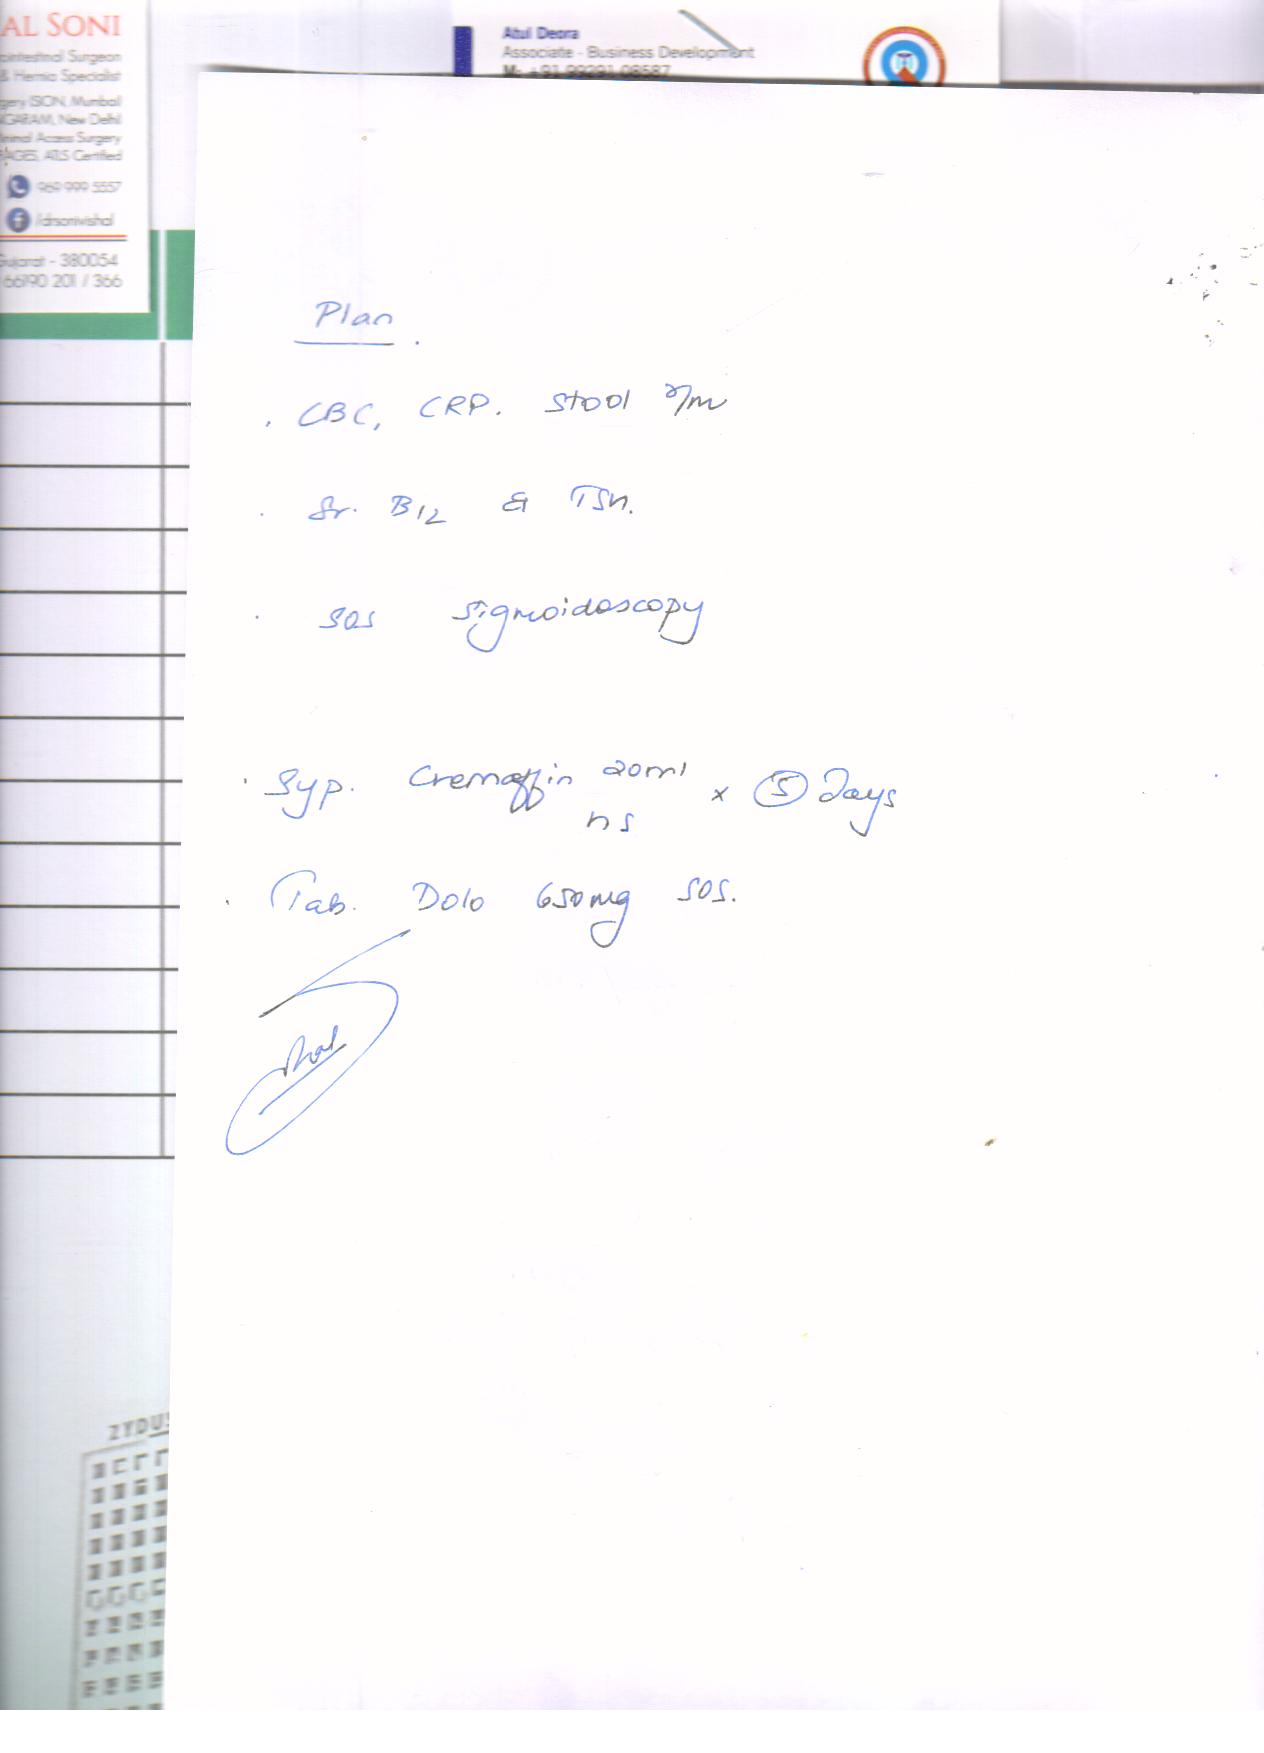 AL SONI
ointestinal Surgeon
& Hernia Specialist
gery (SION, Mumbai
GARAM, New Delhi
inimal Access Surgery
AGES, ATLS Certified
969 999 5557
/drsonivishal
Gujarat - 380054
66190 201 / 366
Atul Deora
Associate - Business Development
M: +91 99291 08587
Plan.
. CBC, CRP. Stool r/m
. Sr. B12 & TSH.
. SOS Sigmoidoscopy
. Syp. Cremaffin 20ml x 5 Days
hs
. Tab. Dolo 650mg SOS.
ZYDUS